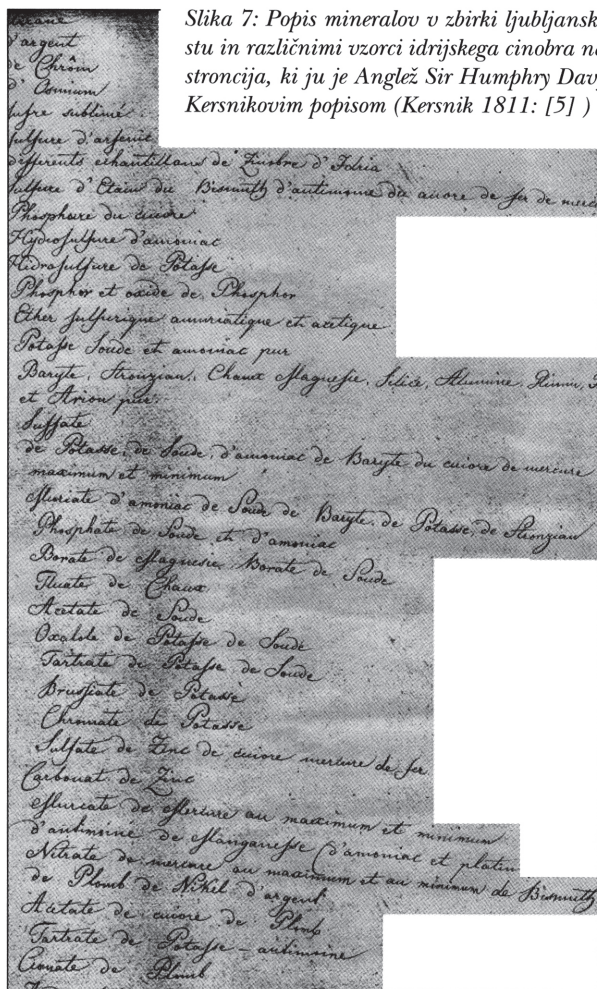 Slika 7: Popis mineralov v zbirki ljubljansk
stu in različnimi vzorci idrijskega cinobra na
stroncija, ki ju je Anglež Sir Humphry Davy
Kersnikovim popisom (Kersnik 1811: [5] )
d'argent
de Chrôm
d'Osmium
sufre sublimé
sulfure d'arsenic
differents echantillons de Zinobre d'Idria
sulfure d'Etain du Bismuth d'antimone du cuivre de fer de merc
Phosphure du cuivre
Hydrosulfure d'amoniac
Hidrosulfure de Potasse
Phosphor et oxide de Phosphor
Ether sulfurique amuriatique et acetique
Potasse Soude et amoniac pur
Baryte, Stronzian, Chaux Magnesie, Silice, Alumine,
et Arion pur
Sulfate
de Potasse, de Soude, d'amoniac de Baryte du cuivre de mercure
maximum et minimum
Muriate d'amoniac de Soude de Baryte, de Potasse, de Stronzian
Phosphate de Soude et d'amoniac
Borate de Magnesie Borate de Soude
Fluate de Chaux
Acetate de Soude
Oxalate de Potasse de Soude
Tartrate de Potasse de Soude
Brussiate de Potasse
Chromate de Potasse
Sulfate de Zinc de cuivre mercure de fer
Carbonat de Zinc
Muriate de Mercure au maximum et minimum
d'antimoine de Manganesse (d'amoniac et platin
Nitrate de mercure au maximum et au minimum de Bismuth
de Plomb de Nikel d'argent
Acetate de cuivre de Plomb
Tartrate de Potasse - antimoine
de Plomb